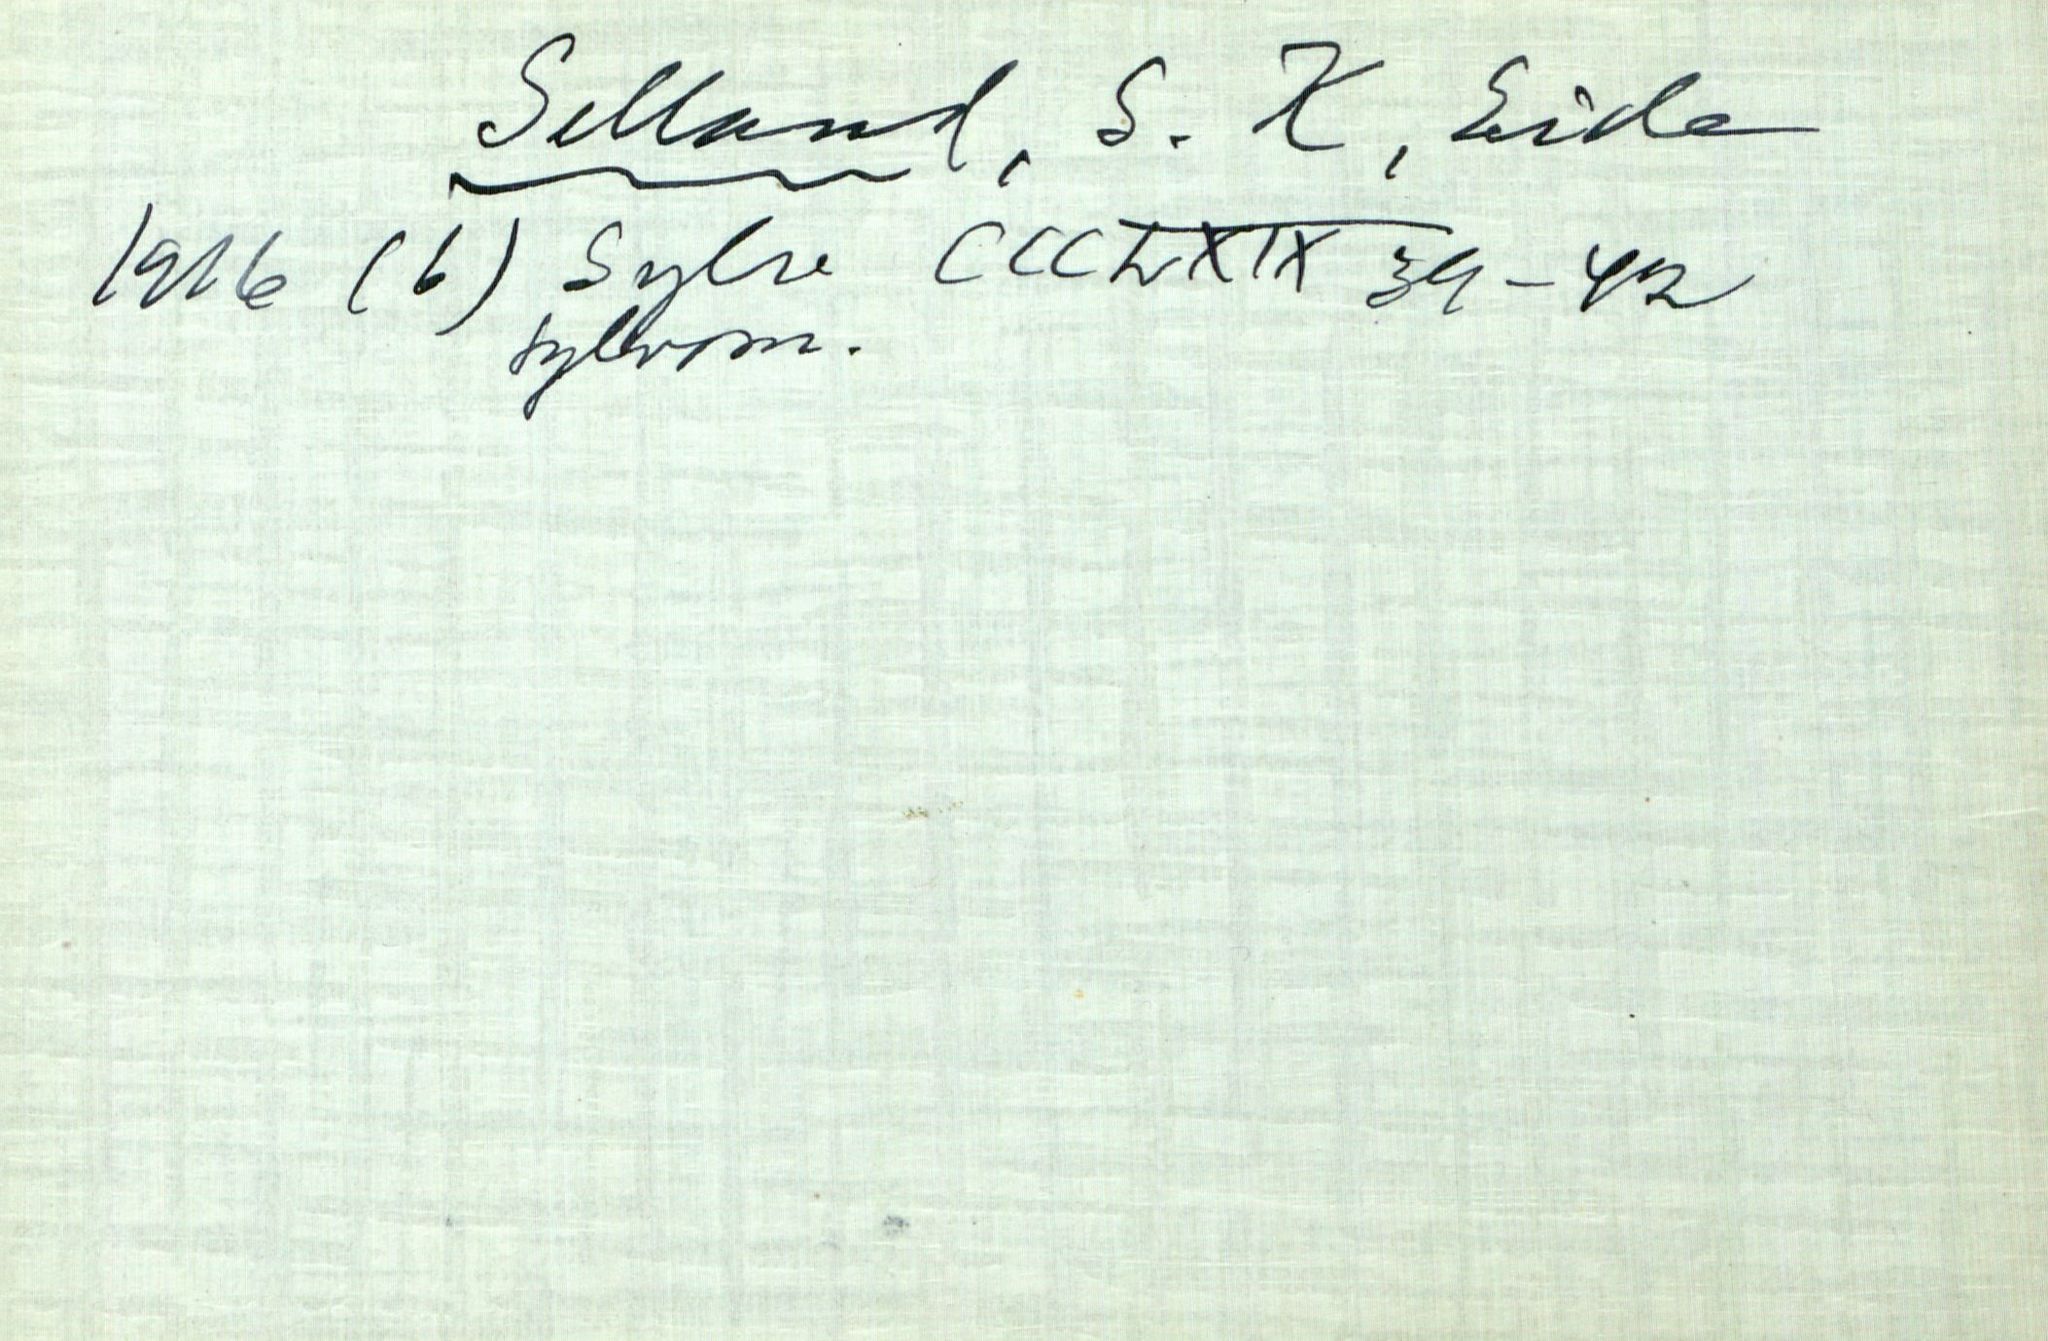 Selland, S. K, Eide
1916 (6) Sylve CCCLXIX 39-42
sylvom.